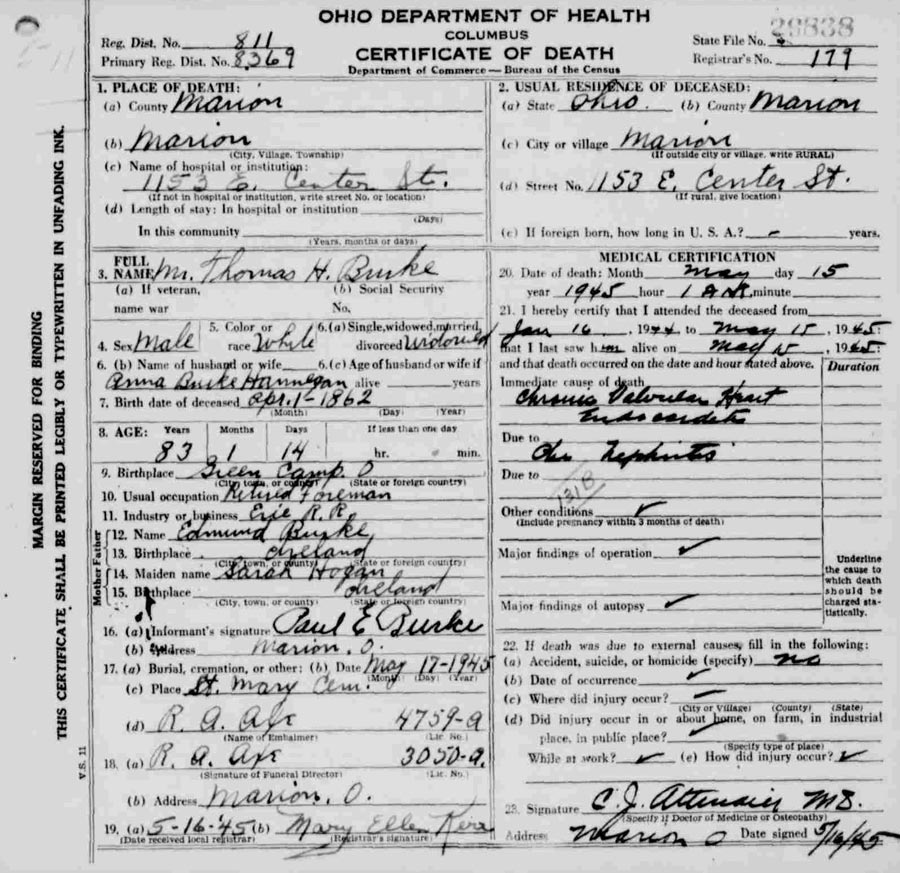 OHIO DEPARTMENT OF HEALTH
COLUMBUS
CERTIFICATE OF DEATH
Department of Commerce — Bureau of the Census
Reg. Dist. No. 811
Primary Reg. Dist. No. 8369
29838
State File No.
Registrar's No. 179
MARGIN RESERVED FOR BINDING
THIS CERTIFICATE SHALL BE PRINTED LEGIBLY OR TYPEWRITTEN IN UNFADING INK.
V.S. 11
1. PLACE OF DEATH:
(a) County Marion
(b) Marion
(City, Village, Township)
(c) Name of hospital or institution:
1153 E. Center St.
(If not in hospital or institution, write street No. or location)
(d) Length of stay: In hospital or institution
(Days)
In this community
(Years, months or days)
2. USUAL RESIDENCE OF DECEASED:
(a) State Ohio. (b) County Marion
(c) City or village Marion
(If outside city or village, write RURAL)
(d) Street No. 1153 E. Center St.
(If rural, give location)
(e) If foreign born, how long in U. S. A.? – years.
3. FULL NAME Mr. Thomas H. Burke
(a) If veteran, name war
(b) Social Security No.
4. Sex Male
5. Color or race White
6. (a) Single, widowed, married, divorced Widowed
6. (b) Name of husband or wife
Anna Burke Hannegan
6. (c) Age of husband or wife if alive years
7. Birth date of deceased Apr. 1- 1862
(Month) (Day) (Year)
8. AGE: Years Months Days If less than one day
83 1 14 hr. min.
9. Birthplace Green Camp. O
(City, town, or county) (State or foreign country)
10. Usual occupation Retired Foreman
11. Industry or business Erie R.R.
Father
12. Name Edmund Burke
13. Birthplace Ireland
(City, town, or county) (State or foreign country)
Mother
14. Maiden name Sarah Hogan
15. Birthplace Ireland
(City, town, or county) (State or foreign country)
16. (a) Informant's signature Paul E Burke
(b) Address Marion, O.
17. (a) Burial, cremation, or other: (b) Date May 17-1945
(Month) (Day) (Year)
(c) Place St. Mary Cem.
(d) R. A. Axe 4759-a
(Name of Embalmer) (Lic. No.)
18. (a) R. A. Axe 3050-a.
(Signature of Funeral Director) (Lic. No.)
(b) Address Marion, O.
19. (a) 5-16-45 (b) Mary Ellen
(Date received local registrar) (Registrar's signature)
MEDICAL CERTIFICATION
20. Date of death: Month May day 15
year 1945 hour 1 AM, minute
21. I hereby certify that I attended the deceased from
Jan 16, 1944 to May 15, 1945:
that I last saw him alive on May 15, 1945:
and that death occurred on the date and hour stated above.
Duration
Immediate cause of death
Chronic Valvular Heart
Endocarditis
Due to
Chr Nephritis
Due to
131B
Other conditions
(Include pregnancy within 3 months of death)
Major findings of operation
Major findings of autopsy
Underline the cause to which death should be charged statistically.
22. If death was due to external causes, fill in the following:
(a) Accident, suicide, or homicide (specify) no
(b) Date of occurrence
(c) Where did injury occur?
(City or Village) (County) (State)
(d) Did injury occur in or about home, on farm, in industrial
place, in public place?
(Specify type of place)
While at work? (e) How did injury occur?
23. Signature C. J. M.D.
(Specify if Doctor of Medicine or Osteopathy)
Address Marion O Date signed 5/16/45